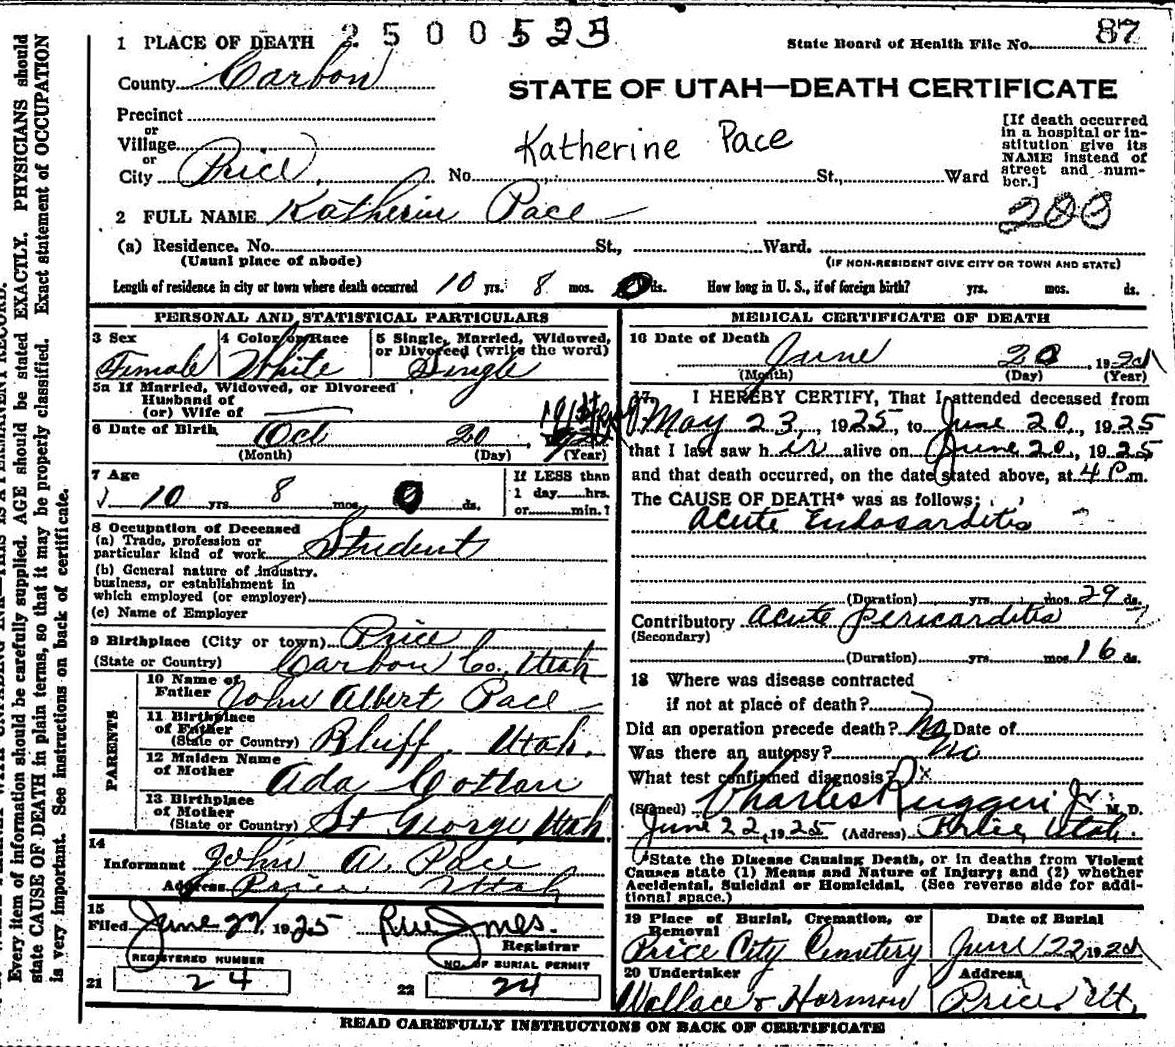 1 PLACE OF DEATH 2500523
State Board of Health File No. 87
County Carbon
STATE OF UTAH—DEATH CERTIFICATE
Precinct
or
Village
or
City Price No. St., Ward
Katherine Pace
[If death occurred in a hospital or institution give its NAME instead of street and number.]
2 FULL NAME Katherin Pace
200
(a) Residence. No. St., Ward.
(Usual place of abode) (IF NON-RESIDENT GIVE CITY OR TOWN AND STATE)
Length of residence in city or town where death occurred 10 yrs. 8 mos. 0 ds. How long in U. S., if of foreign birth? yrs. mos. ds.
PERSONAL AND STATISTICAL PARTICULARS
3 Sex 4 Color or Race 5 Single, Married, Widowed, or Divorced (write the word)
Female White Single
5a If Married, Widowed, or Divorced
Husband of
(or) Wife of
6 Date of Birth Oct 20
(Month) (Day) (Year)
7 Age
10 yrs 8 mos. 0 ds.
If LESS than
1 day hrs.
or min.?
8 Occupation of Deceased
(a) Trade, profession or
particular kind of work Student
(b) General nature of industry,
business, or establishment in
which employed (or employer)
(c) Name of Employer
9 Birthplace (City or town) Price
(State or Country) Carbon Co. Utah
PARENTS
10 Name of
Father John Albert Pace
11 Birthplace
of Father
(State or Country) Bluff. Utah.
12 Maiden Name
of Mother Ada Cottan
13 Birthplace
of Mother
(State or Country) St George, Utah
14
Informant John A. Pace
Address Price Utah
15
Filed June 22, 1925
Registrar
REGISTERED NUMBER
21 24
NO. OF BURIAL PERMIT
22 24
MEDICAL CERTIFICATE OF DEATH
16 Date of Death
June 20 192
(Month) (Day) (Year)
17 I HEREBY CERTIFY, That I attended deceased from
May 23, 1925, to June 20, 1925
that I last saw h er alive on June 20, 1925
and that death occurred, on the date stated above, at 4 P.m.
The CAUSE OF DEATH* was as follows:
Acute Endocarditis
(Duration) yrs. mos 29 ds.
Contributory acute pericarditis
(Secondary)
(Duration) yrs. mos 16 ds.
18 Where was disease contracted
if not at place of death? ?
Did an operation precede death? No Date of
Was there an autopsy? no
What test confirmed diagnosis?
(Signed) Charles Ruggeri Jr. M. D.
June 22, 1925 (Address) Price, Utah.
*State the Disease Causing Death, or in deaths from Violent
Causes state (1) Means and Nature of Injury; and (2) whether
Accidental, Suicidal or Homicidal. (See reverse side for additional space.)
19 Place of Burial, Cremation, or Removal Date of Burial
Price City Cemetery June 22 192
20 Undertaker Address
Wallace & Harmon Price. Ut.
READ CAREFULLY INSTRUCTIONS ON BACK OF CERTIFICATE
Every item of information should be carefully supplied. AGE should be stated EXACTLY. PHYSICIANS should
state CAUSE OF DEATH in plain terms, so that it may be properly classified. Exact statement of OCCUPATION
is very important. See instructions on back of certificate.